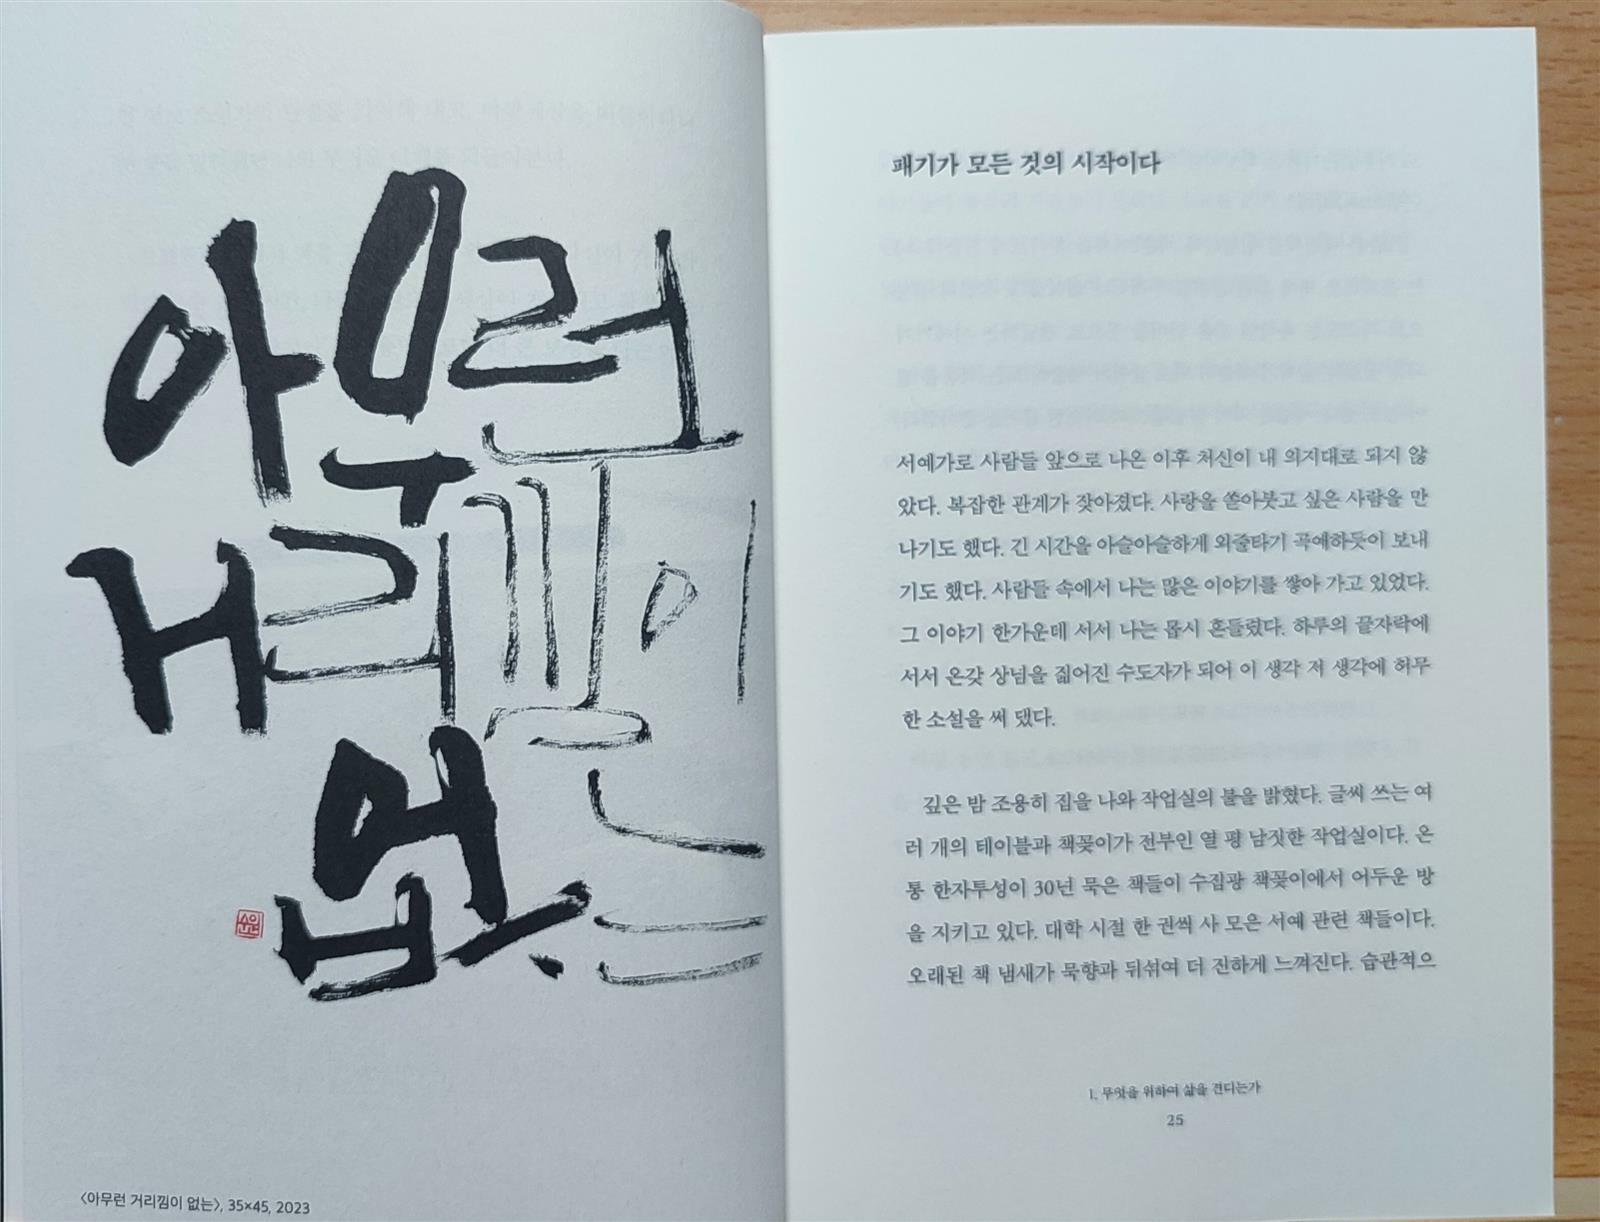 아무런
거리낌이
없는
순원
〈아무런 거리낌이 없는〉, 35×45, 2023
패기가 모든 것의 시작이다
서예가로 사람들 앞으로 나온 이후 처신이 내 의지대로 되지 않
았다. 복잡한 관계가 잦아졌다. 사랑을 쏟아붓고 싶은 사람을 만
나기도 했다. 긴 시간을 아슬아슬하게 외줄타기 곡예하듯이 보내
기도 했다. 사람들 속에서 나는 많은 이야기를 쌓아 가고 있었다.
그 이야기 한가운데 서서 나는 몹시 흔들렸다. 하루의 끝자락에
서서 온갖 상념을 짊어진 수도자가 되어 이 생각 저 생각에 허무
한 소설을 써 댔다.
깊은 밤 조용히 집을 나와 작업실의 불을 밝혔다. 글씨 쓰는 여
러 개의 테이블과 책꽂이가 전부인 열 평 남짓한 작업실이다. 온
통 한자투성이 30년 묵은 책들이 수집광 책꽂이에서 어두운 방
을 지키고 있다. 대학 시절 한 권씩 사 모은 서예 관련 책들이다.
오래된 책 냄새가 묵향과 뒤섞여 더 진하게 느껴진다. 습관적으
1. 무엇을 위하여 삶을 견디는가
25